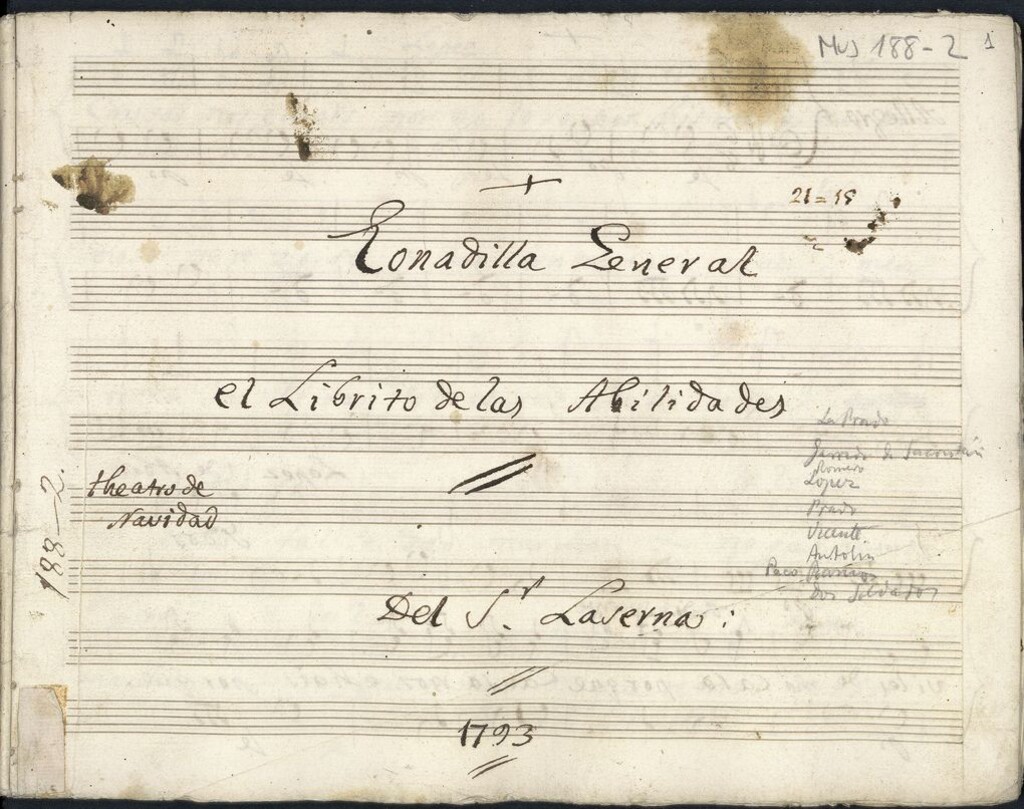 Mus 188-2 1
21=15
Tonadilla General
el Librito de las Abilidades
theatro de
Navidad
188-2.
La Prado
Garrido de
Romero
Lopez
Prado
Vicente
Antolin
Paco Ramos
Dos Soldados
Del S.r Laserna:
1793